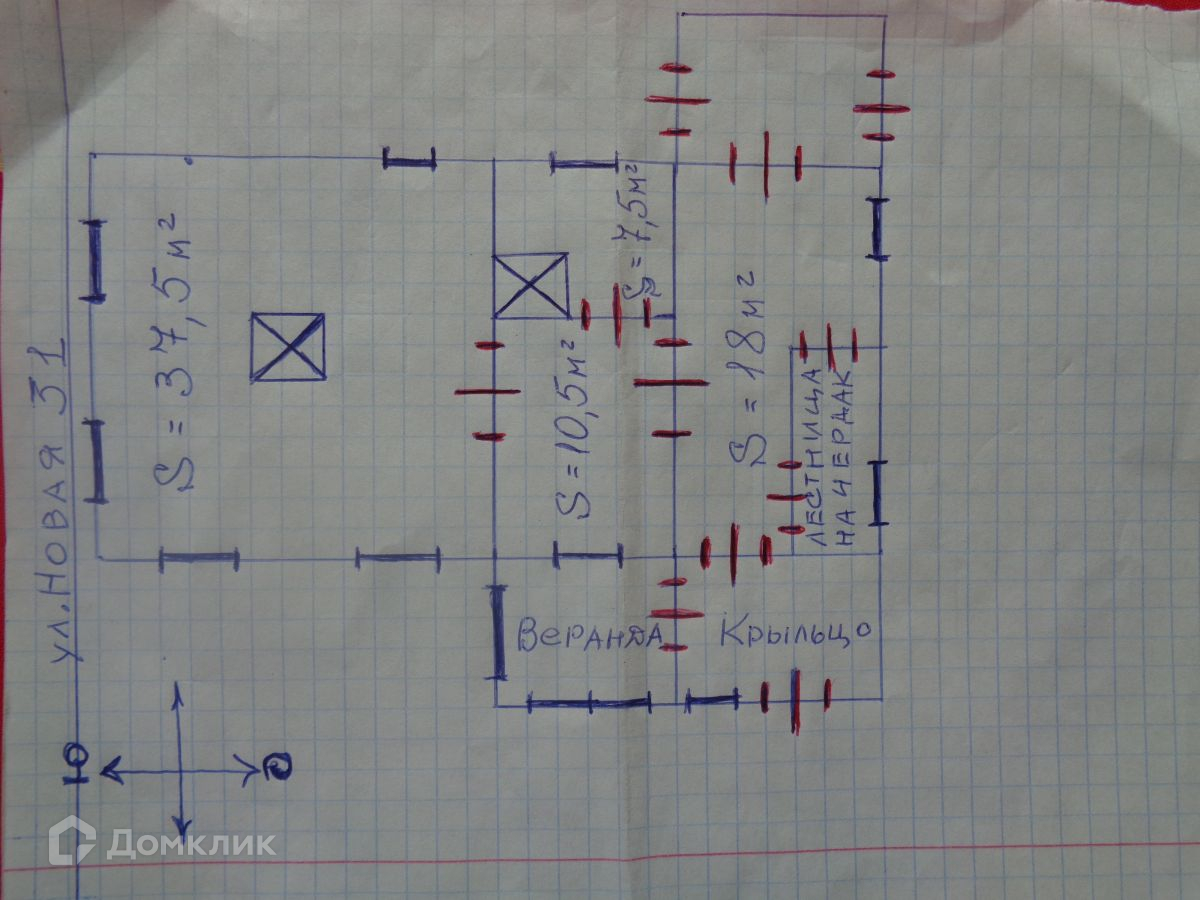 ул. Новая 31
S = 37,5 м²
S = 10,5 м²
S = 7,5 м²
S = 18 м²
ЛЕСТНИЦА
НА ЧЕРДАК
ВЕРАНДА
Крыльцо
Ю
Домклик